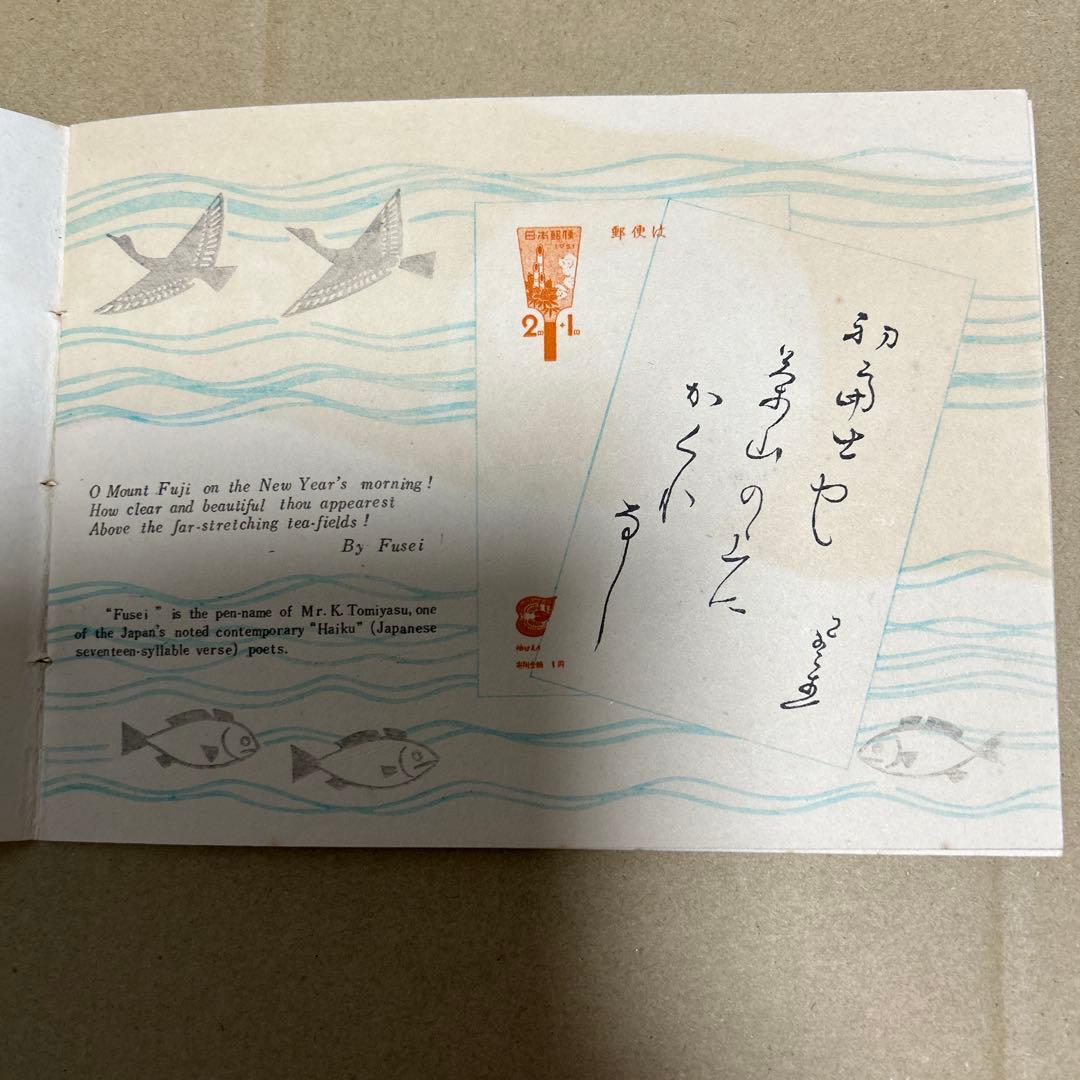 O Mount Fuji on the New Year's morning!
How clear and beautiful thou appearest
Above the far-stretching tea-fields!
By Fusei
"Fusei" is the pen-name of Mr. K. Tomiyasu, one
of the Japan's noted contemporary "Haiku" (Japanese
seventeen-syllable verse) poets.
日本郵便
1951
2円+1円
郵便は
初富士や
茶山の上に
かくれ
なし
1円